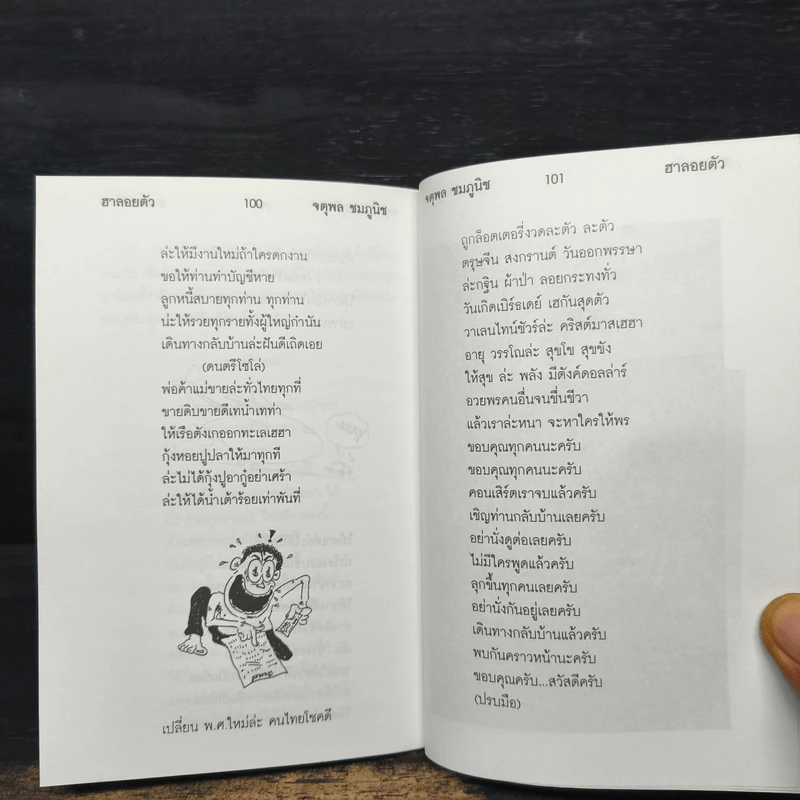 ฮาลอยตัว 100 จตุพล ชมภูนิช
ล่ะให้มีงานใหม่ถ้าใครตกงาน
ขอให้ท่านทำบัญชีหาย
ลูกหนี้สบายทุกท่าน ทุกท่าน
น่ะให้รวยทุกรายทั้งผู้ใหญ่กำนัน
เดินทางกลับบ้านล่ะฝันดีเถิดเอย
(ดนตรีโซโล่)
พ่อค้าแม่ขายล่ะทั่วไทยทุกที่
ขายดิบขายดีเทน้ำเทท่า
ให้เรือตังเกออกทะเลเฮฮา
กุ้งหอยปูปลาให้มาทุกที
ล่ะไม่ได้กุ้งปูอากู๋อย่าเศร้า
ล่ะให้ได้น้ำเต้าร้อยเท่าพันที่
เปลี่ยน พ.ศ.ใหม่ล่ะ คนไทยโชคดี
จตุพล ชมภูนิช 101 ฮาลอยตัว
ถูกล็อตเตอรี่งวดละตัว ละตัว
ตรุษจีน สงกรานต์ วันออกพรรษา
ล่ะกฐิน ผ้าป่า ลอยกระทงทั่ว
วันเกิดเบิร์ธเดย์ เฮกันสุดตัว
วาเลนไทน์ชัวร์ล่ะ คริสต์มาสเฮฮา
อายุ วรรโณล่ะ สุขโข สุขขัง
ให้สุข ล่ะ พลัง มีตังค์ดอลล่าร์
อวยพรคนอื่นจนชื่นชีวา
แล้วเราล่ะหนา จะหาใครให้พร
ขอบคุณทุกคนนะครับ
ขอบคุณทุกคนนะครับ
คอนเสิร์ตเราจบแล้วครับ
เชิญท่านกลับบ้านเลยครับ
อย่านั่งดูต่อเลยครับ
ไม่มีใครพูดแล้วครับ
ลุกขึ้นทุกคนเลยครับ
อย่านั่งกันอยู่เลยครับ
เดินทางกลับบ้านแล้วครับ
พบกันคราวหน้านะครับ
ขอบคุณครับ...สวัสดีครับ
(ปรบมือ)